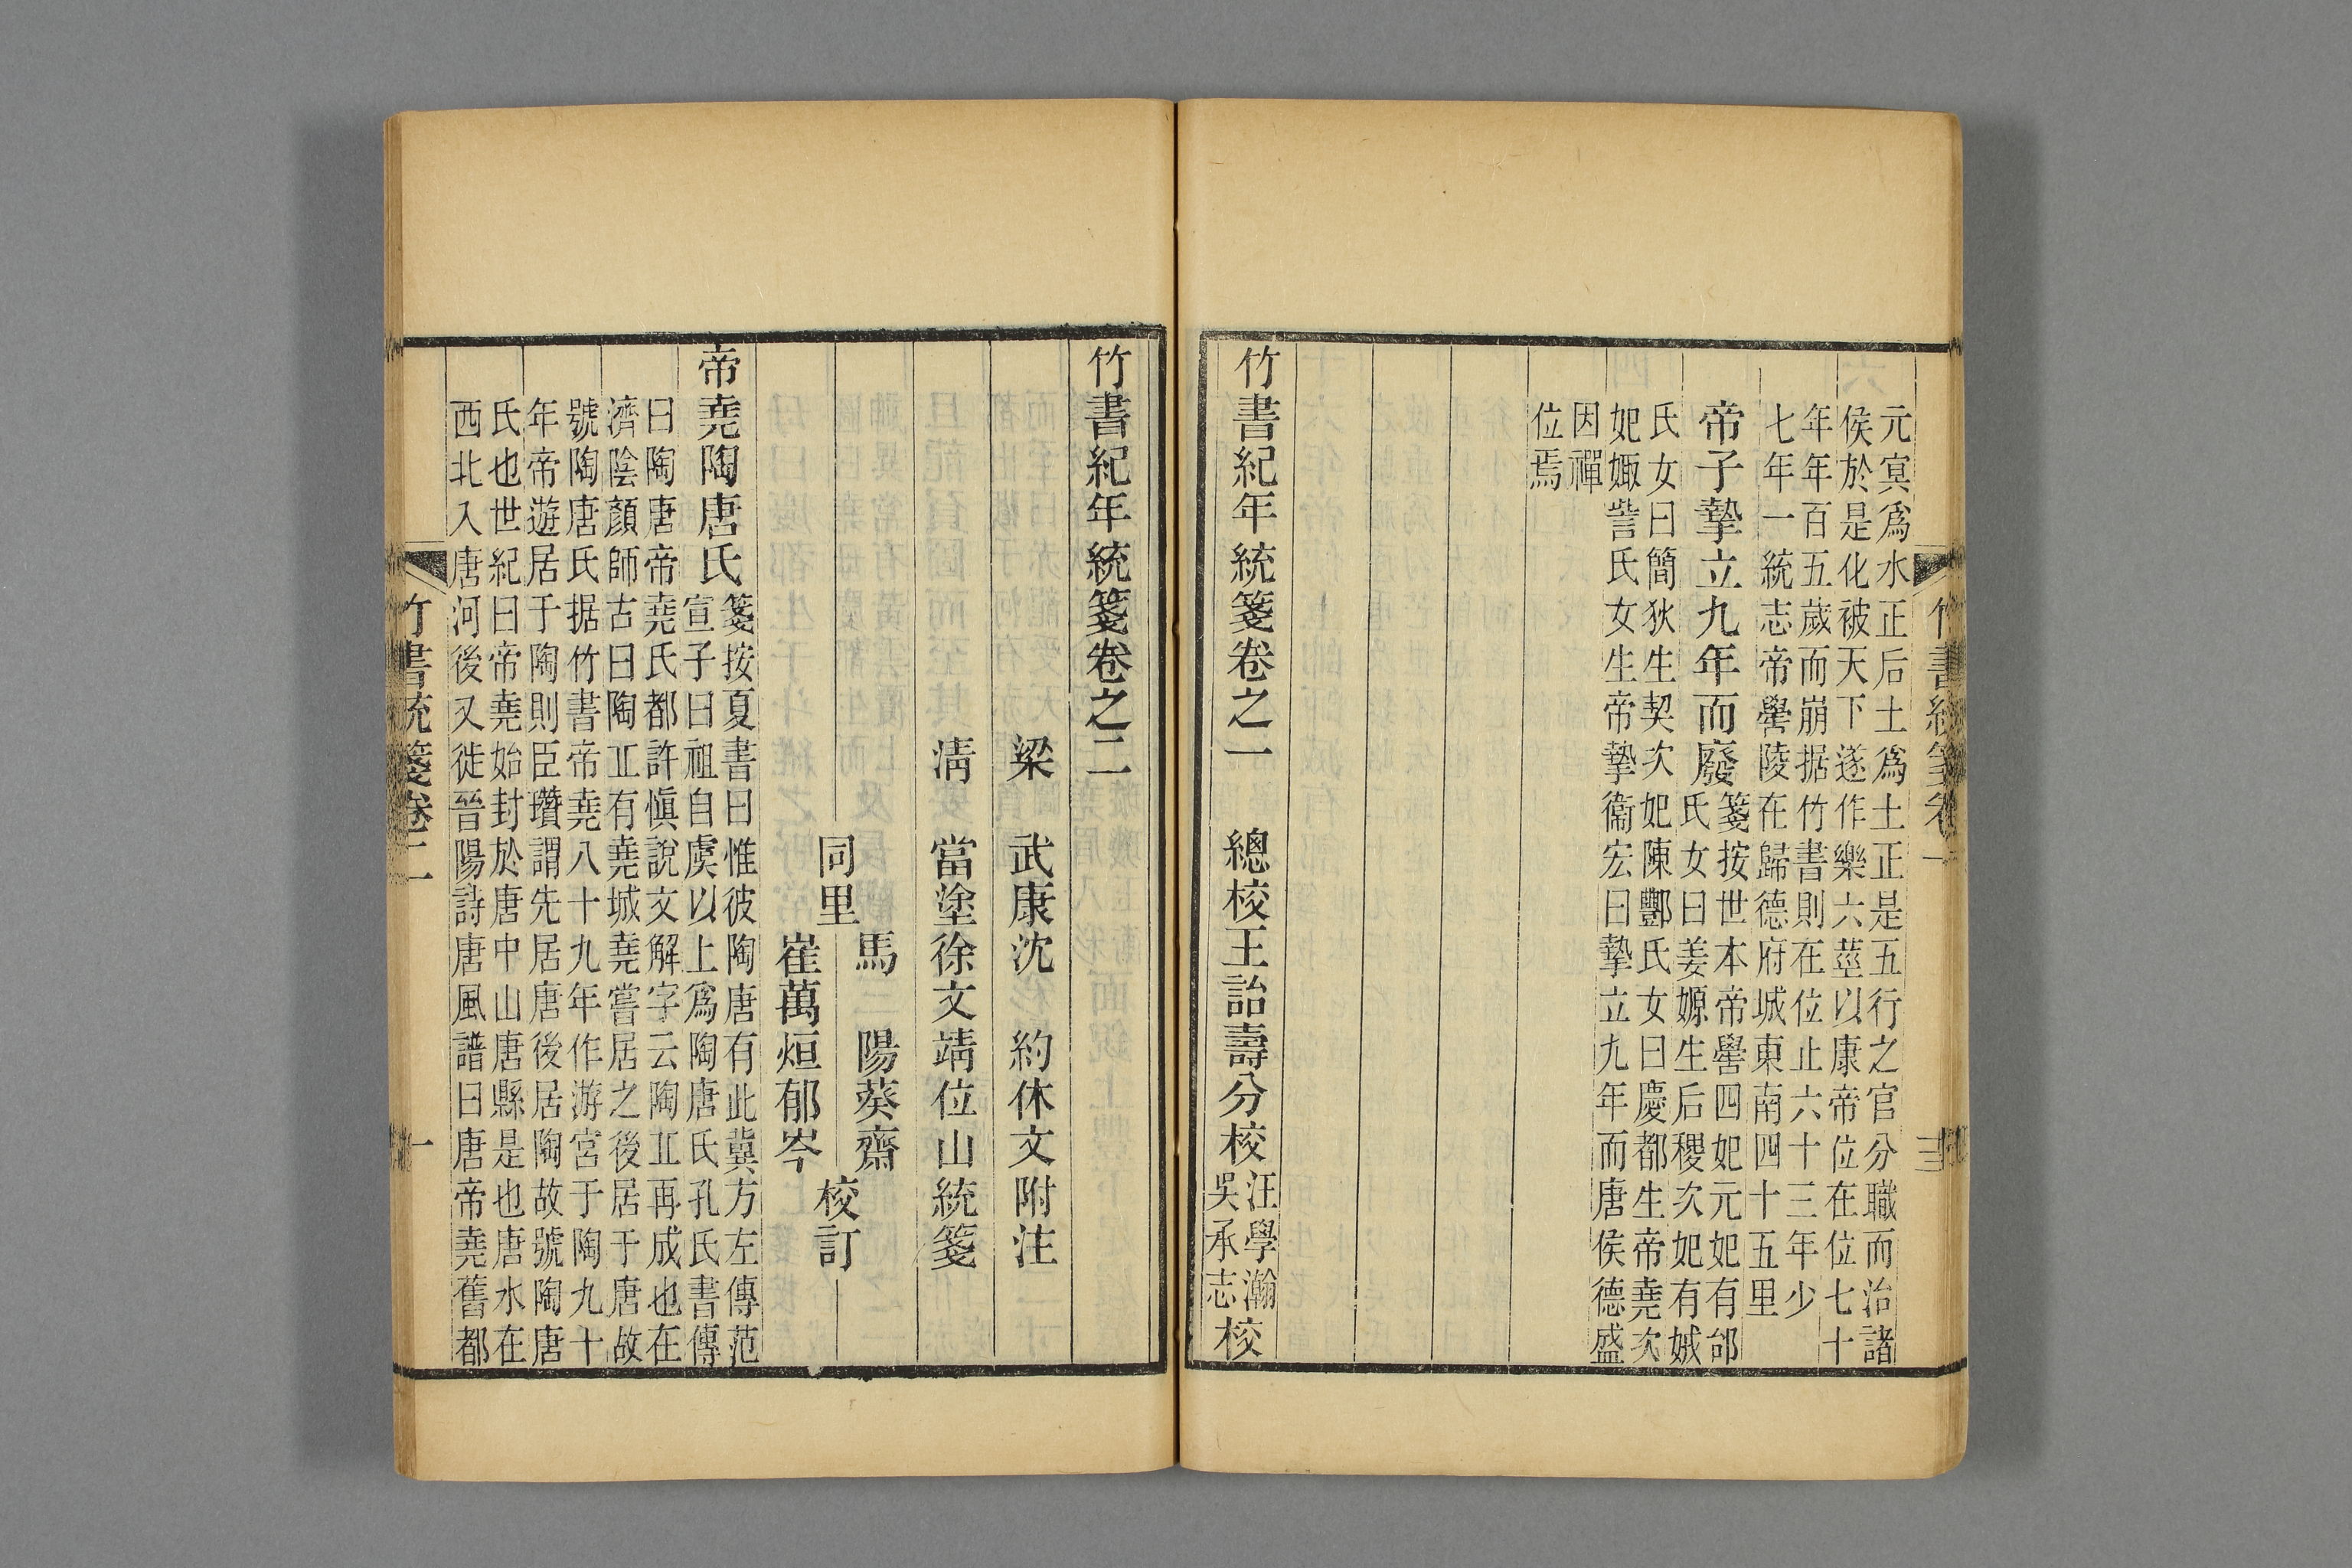 元冥爲水正后土爲土正是五行之官分職而治諸
侯於是化被天下遂作樂六莖以康帝位在位七十
年年百五歲而崩据竹書則在位止六十三年少
七年一統志帝嚳陵在歸德府城東南四十五里
帝子摯立九年而廢
箋按世本帝嚳四妃元妃有邰
氏女曰姜嫄生后稷次妃有娀
氏女曰簡狄生契次妃陳酆氏女曰慶都生帝堯次
妃娵訾氏女生帝摯衞宏曰摯立九年而唐侯德盛
因禪
位焉
竹書紀年統箋卷之一 總校王詒壽分校
汪學瀚
吳承志
校
竹書紀年統箋卷之二
梁 武康沈 約休文附注
清 當塗徐文靖位山統箋
同里
馬 陽葵齋
崔萬烜郁岑
校訂
帝堯陶唐氏
箋按夏書曰惟彼陶唐有此冀方左傳范
宣子曰祖自虞以上爲陶唐氏孔氏書傳
曰陶唐帝堯氏都許愼說文解字云陶丘再成也在
濟陰顏師古曰陶丘有堯城堯嘗居之後居于唐故
號陶唐氏据竹書帝堯八十九年作游宮于陶九十
年帝遊居于陶則臣瓚謂先居唐後居陶故號陶唐
氏也世紀曰帝堯始封於唐中山唐縣是也唐水在
西北入唐河後又徙晉陽詩唐風譜曰唐帝堯舊都
竹書統箋卷二
一